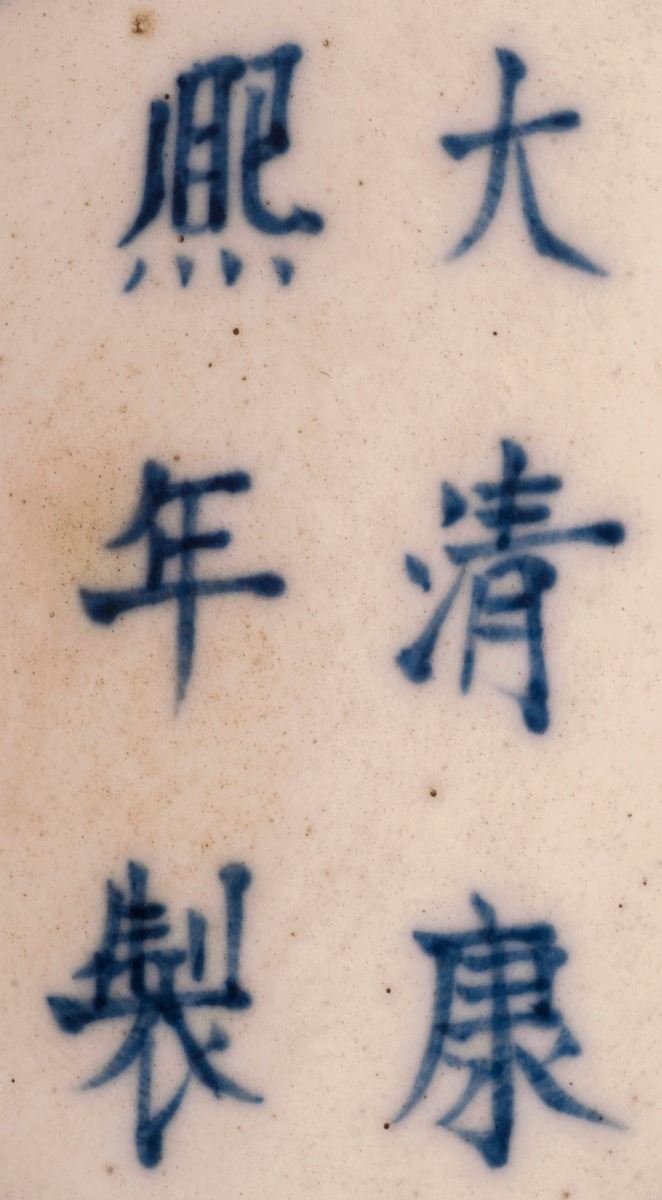 大清康
熈年製